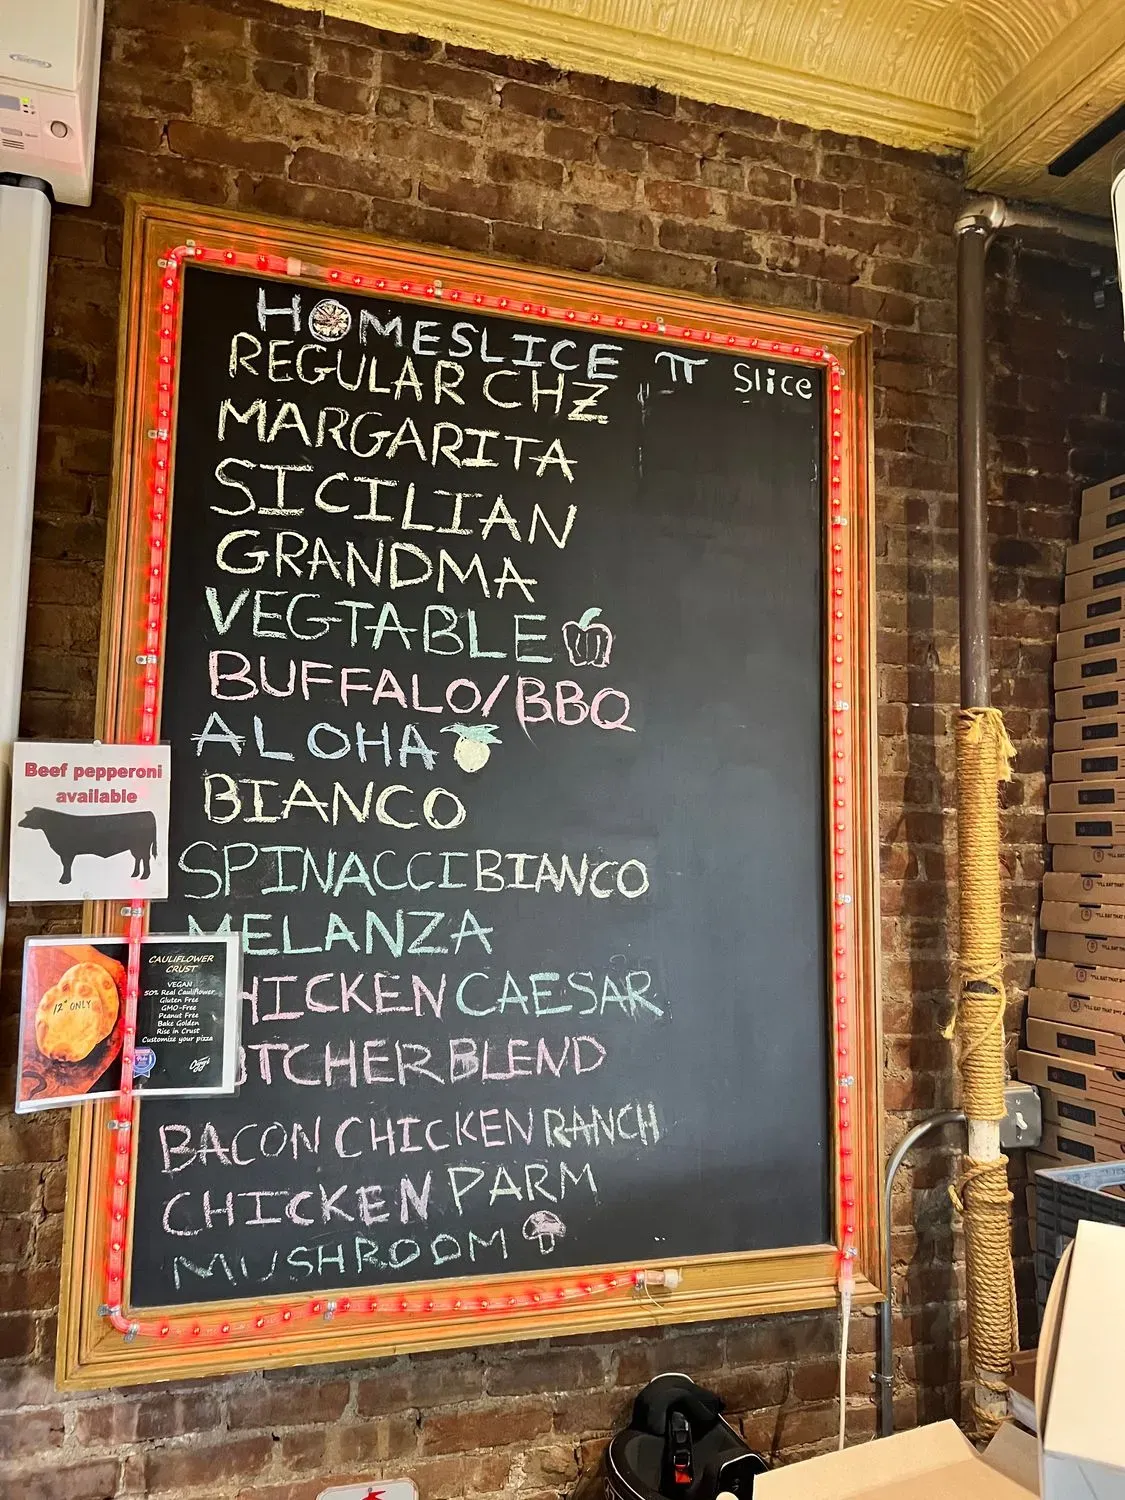 HOMESLICE π Slice
REGULAR CHZ
MARGARITA
SICILIAN
GRANDMA
VEGTABLE
BUFFALO/BBQ
ALOHA
BIANCO
SPINACCI BIANCO
MELANZA
HICKEN CAESAR
UTCHER BLEND
BACON CHICKEN RANCH
CHICKEN PARM
MUSHROOM
Beef pepperoni
available
12" ONLY
CAULIFLOWER
CRUST
VEGAN
50% Real Cauliflower
Gluten Free
GMO-Free
Peanut Free
Bake Golden
Rise in Crust
Customize your pizza